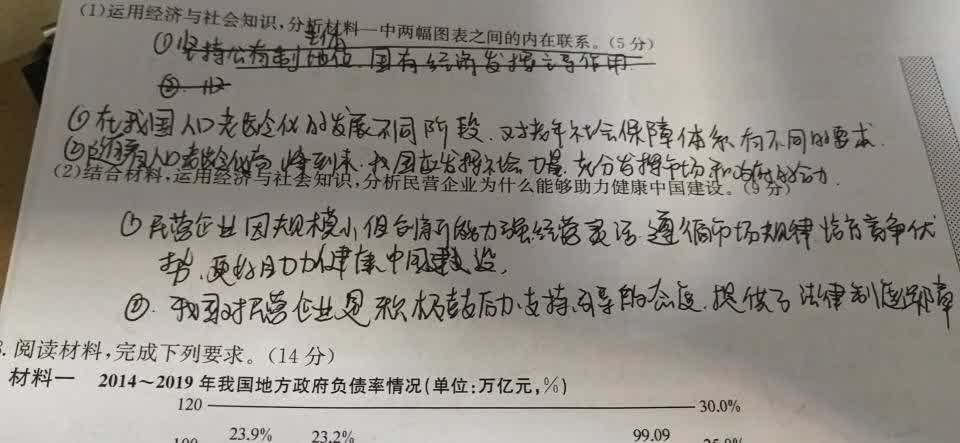 (1)运用经济与社会知识,分析材料一中两幅图表之间的内在联系。(5分)
主体
①坚持公有制地位,国有经济发挥主导作用
②
①在我国人口老龄化的发展不同阶段,对老年社会保障体系有不同的要求.
②随着人口老龄化 将到来,我国应发挥社会力量,充分发挥市场和政府的合力.
(2)结合材料,运用经济与社会知识,分析民营企业为什么能够助力健康中国建设。(9分)
①民营企业因规模小但创新能力强经营灵活,遵循市场规律恰有竞争优
势,更好助力健康中国建设,
②.我国对民营企业是积极鼓励,支持,引导的态度,提供了法律制度保障
3.阅读材料,完成下列要求。(14分)
材料一 2014~2019年我国地方政府负债率情况(单位:万亿元,%)
120 30.0%
100 23.9% 23.2% 99.09